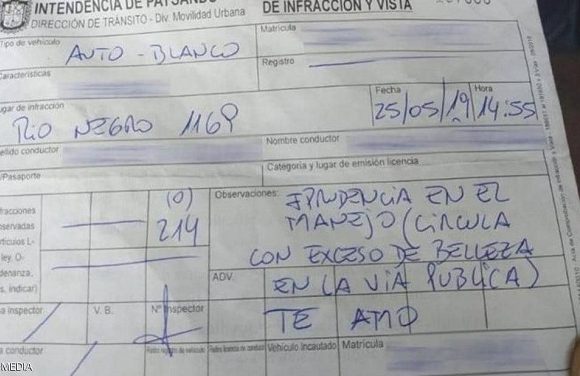 INTENDENCIA DE PAYSAND
DE INFRACCIÓN Y VISTA
DIRECCIÓN DE TRÁNSITO - Div. Movilidad Urbana
Tipo de vehículo
AUTO - BLANCO
Matrícula
Características
Registro
ugar de infracción
RIO NEGRO 1169
Fecha
25/05/19
Hora
14:55
ellido conductor
Nombre conductor
/Pasaporte
Categoría y lugar de emisión licencia
fracciones
servadas
rtículos L-
ley, O-
denanza,
s. indicar)
(0)
214
Observaciones:
IPRUDENCIA EN EL
MANEJO (CIRCULA
CON EXCESO DE BELLEZA
EN LA VIA PUBLICA)
TE AMO
ADV.
a Inspector
V. B.
Nº Inspector
a conductor
Retiro registro de vehículo
Retiro licencia de conducir
Vehículo Incautado
Matrícula
MEDIA